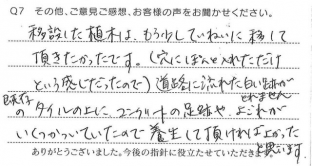 Q7 その他、ご意見ご感想、お客様の声をお聞かせください。
移設した植木は、もう少していねいに移して
頂きたかったです。(穴にぽんと入れただけ
という感じだったので) 道路に流れた白い跡が
とれません
既存
のタイルの上に、コンクリートの足跡や、よごれが
いくつかついていたので養生して頂ければよかった
と思います。
ありがとうございました。今後の指針に役立たせていただきます